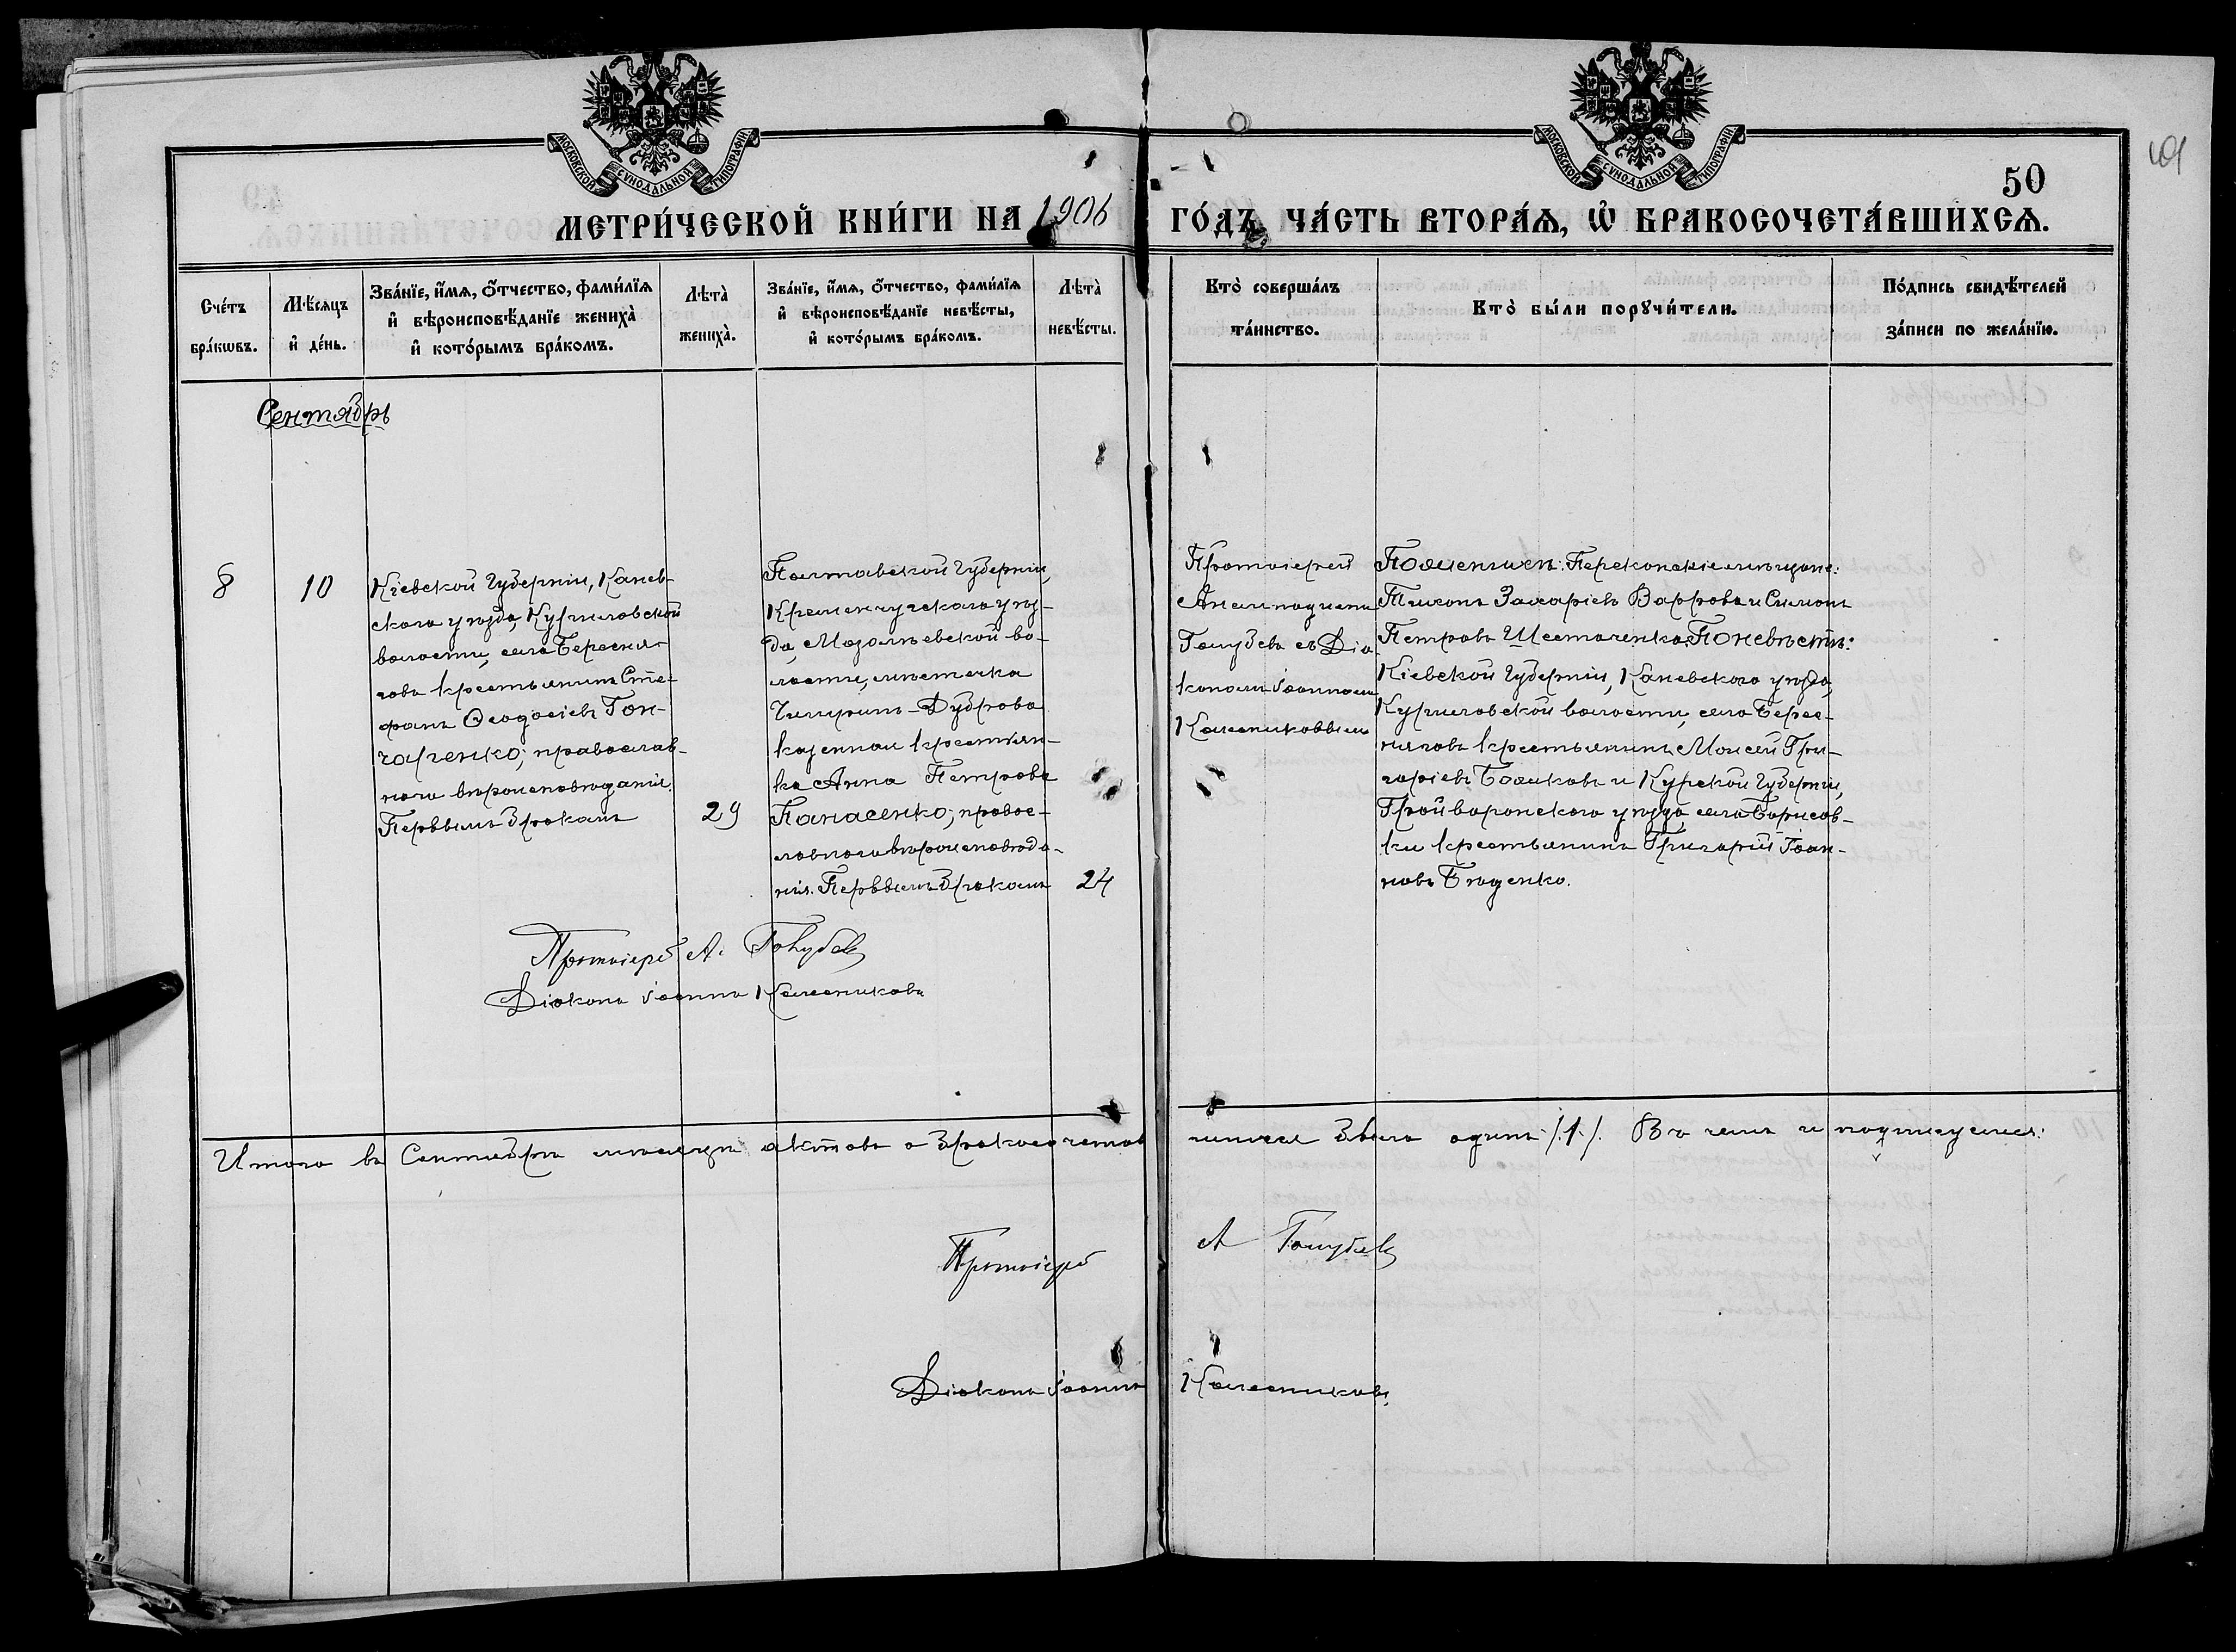 МОСКОВСКОЙ СѴНОДАЛЬНОЙ ТИПОГРАФІИ
МОСКОВСКОЙ СѴНОДАЛЬНОЙ ТИПОГРАФІИ
50
МЕТРИ́ЧЕСКОЙ КНИ́ГИ НА 1906 ГО́ДЪ, ЧА́СТЬ ВТОРА́Ѧ, Ѽ БРАКОСОЧЕТА́ВШИХСѦ.
Сче́тъ бра́кѡвъ.
Мѣ́сяцъ и҆ де́нь.
Зва́нїе, и҆́мѧ, ѻ҆́тчество, фами́лїѧ
и҆ вѣроисповѣ́данїе жениха̀
и҆ кото́рымъ бра́комъ.
Лѣта̀
жениха̀.
Зва́нїе, и҆́мѧ, ѻ҆́тчество, фами́лїѧ
и҆ вѣроисповѣ́данїе невѣ́сты,
и҆ кото́рымъ бра́комъ.
Лѣта̀
невѣ́сты.
Кто̀ соверша́лъ
та́инство.
Кто̀ бы́ли порꙋчи́тели.
По́дпись свидѣ́телей
за́писи по жела́нїю.
Сентябрь
8
10
Кіевской Губерніи, Канев-
скаго уѣзда, Куриловской
волости, села Берес
гова крестьянинъ Сте-
фанъ Ѳеодосіевъ Гон-
чаренко; православ-
наго вѣроисповѣданія.
Первымъ бракомъ
29
Полтавской Губерніи,
Кременчугскаго уѣз-
да, Мозолѣевской во-
лости, мѣстечка
Чигиринъ-Дуброва
казенная крестьян-
ка Анна Петрова
Панасенко; правос-
лавнаго вѣроисповѣда-
нія. Первымъ бракомъ
24
Протоіерей
Анемподистъ
Голубевъ съ Діа-
кономъ Іоанномъ
Колесниковымъ
По женихѣ: Перекопскіе мѣщане:
Тихонъ Захаріевъ и Симонъ
Петровъ Шестаченко. По невѣстѣ:
Кіевской Губерніи, Каневскаго уѣзда,
Куриловской волости, села Берес-
нягова крестьянинъ Моисей Гри-
горіевъ и Курской Губерніи,
Грайворонскаго уѣзда, села Борисов-
ки крестьянинъ Григорій Іоан-
новъ
Протоіерей А. Голубевъ
Діаконъ Іоаннъ Колесниковъ
Итого въ Сентябрѣ мѣсяцѣ актовъ о бракосочетав шихся было одинъ /.1./. Въ чемъ и подписуемся:
Протоіерей А Голубевъ
Діаконъ Іоаннъ Колесниковъ